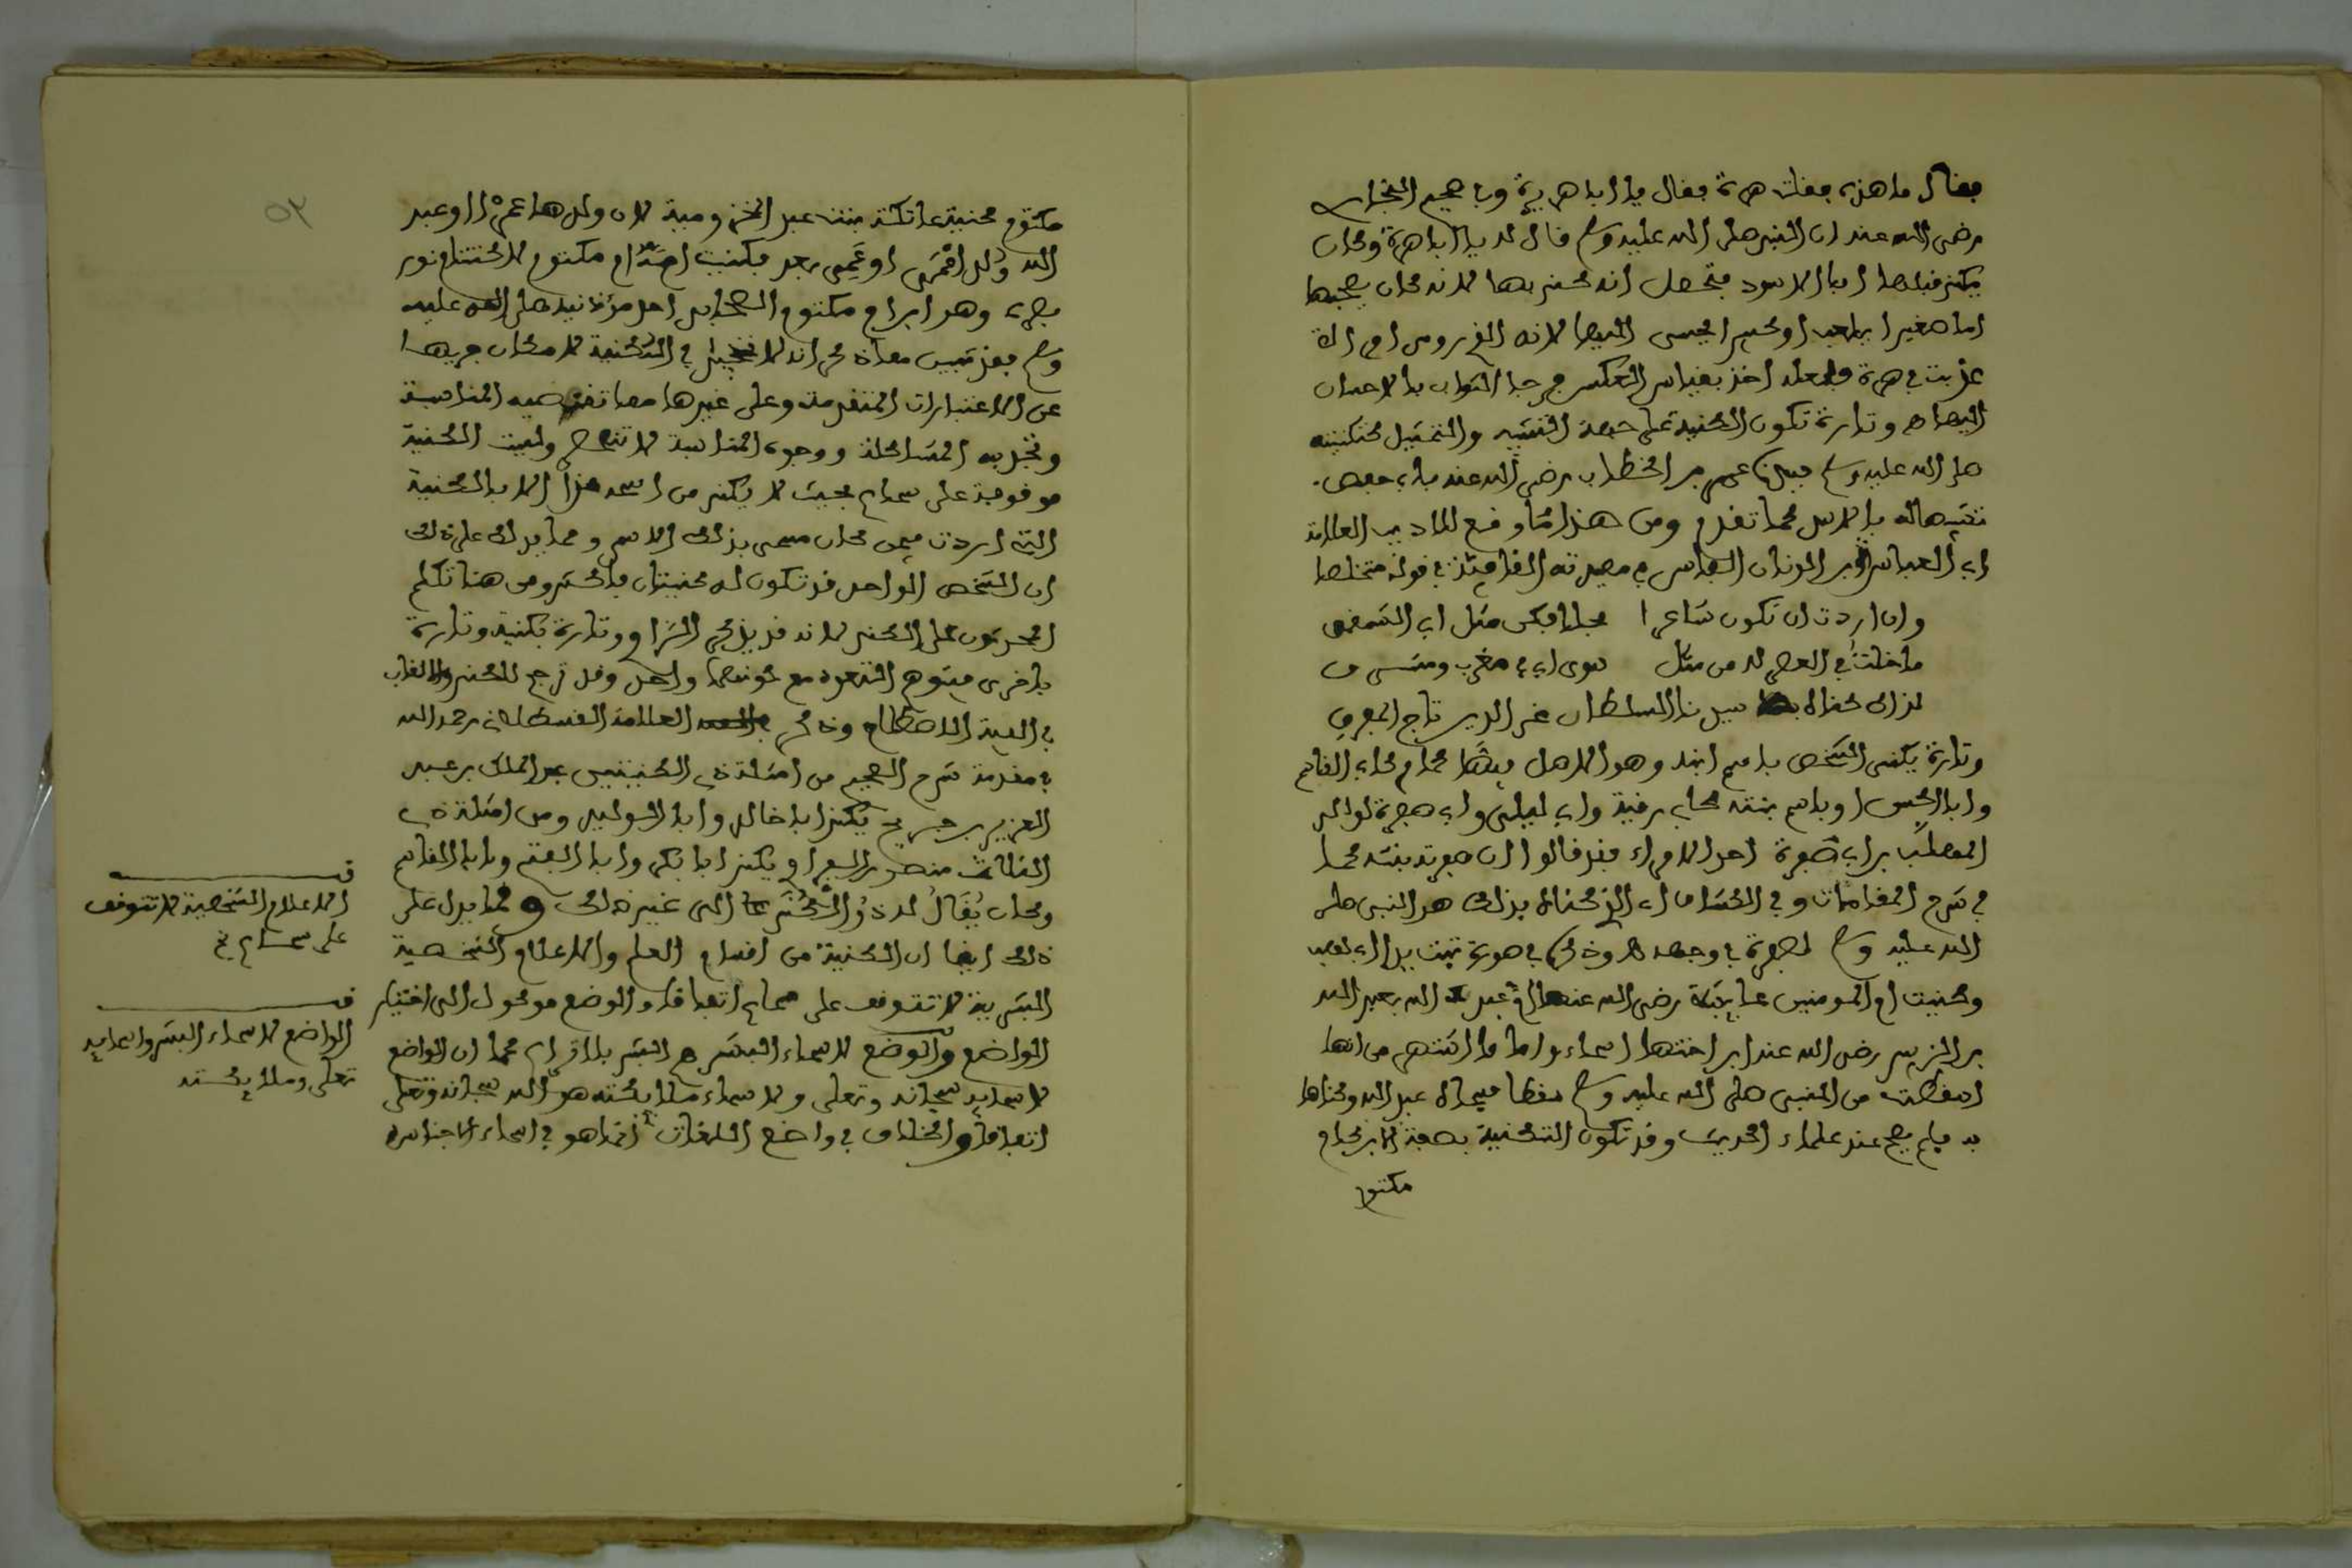 فقال ما هذه فقلت هرة فقال يا ابا هريرة وفي صحيح البخاري
رضي الله عنه ان النبي صلى الله عليه وسلم قال له يا ابا هرة وكان
يكنى قبلها ابا الاسود فتحصل انه كني بها لانه كان يصحبها
اما صغيرا يلعب او كبيرا يحسن اليها لانه الذي روى ان امراة
عذبت في هرة فلعله اخذ بقياس العكس فرجا الثواب بالاحسان
اليها اه وتارة تكون الكنية على جهة التشبيه والتمثيل كتكنيته
صلى الله عليه وسلم سيدنا عمر بن الخطاب رضي الله عنه بابي حفص
تشبيها له بالاسد كما تقدم ومن هذا ما وقع للاديب العلامة
ابي العباس ابن الونان الفاسي في قصيدته القافية في قوله متخلصا
وان اردت ان تكون شاعرا فحلا فكن مثل ابي الشمقمق
ما خلت في العصر له من مثل سوى ابي في مغرب ومشرق
لذاك كناه سيدنا السلطان عز الدين تاج المفرق
وتارة يكنى الشخص باسم ابنه وهو الاصل فيها كما في كابي القاسم
وابا الحسن او باسم بنته كابي رقية وابي ليلى وابي صفرة لوالد
المهلب بن ابي صفرة احد الامراء فقد قالوا ان صفرة بنته كما
في شرح المقامات وفي الكشاف ان الذي كناه بذلك هو النبي صلى
الله عليه وسلم لصفرة في وجهه وذكره في سورة تبت يدا ابي لهب
وكنيت ام المومنين عايشة رضي الله عنها ام عبد الله بعبد الله
بن الزبير رضي الله عنه ابن اختها اسماء واما ما اشتهر من انها
اسقطت من النبي صلى الله عليه وسلم سقطا فسماه عبد الله وكناها
به فلم يصح عند علماء الحديث وقد تكون التكنية بصفة الابن كام
مكتوم
٥٣
مكتوم كنية عاتكة بنت عبد الله المخزومية لان ولدها عمرا او عبد
الله ولد اعمى او عمي بعد فكنيت امه ام مكتوم لاكتتام نور
بصره وهو ابن ام مكتوم الصحابي احد مؤذنيه صلى الله عليه
وسلم فقد تبين مما ذكر انه لا تخييل في التكنية لامكان جريها
عن الاعتبارات المتقدمة وعلى غيرها مما تقتضيه المناسبة
وتجلبه المشاكلة ووجوه المناسبة لا تنحصر وليست الكنية
موقوفة على سماع بحيث لا يكنى من اسمه هذا الا بالكنية
التي اردت فيمن كان مسمى بذلك الاسم ومما يدلك على ذلك
ان الشخص الواحد قد تكون له كنيتان فاكثر ومن هنا تكلم
المحدثون على الكنى لانه قد يذكر الراوي تارة بكنية وتارة
باخرى فيتوهم التعدد مع كونهما واحد وقد ترجم للكنى والالقاب
في الفية الاصطلاح وذكر العلامة القسطلاني رحمه الله
في مقدمة شرح الصحيح من امثلة ذي الكنيتين عبد الملك بن عبد
العزيز بن جريج يكنى ابا خالد وابا الوليد ومن امثلة ذي
الثلاث منصور الفراوي يكنى ابا بكر وابا الفتح وابا القاسم
وكان يقال له ذو الكنى الى غير ذلك ومما يدل على
ذلك ايضا ان الكنية من اقسام العلم والاعلام الشخصية
البشرية لا تتوقف على سماع اتفاقا والوضع موكول الى اختيار
الواضع والوضع لاسماء البشر هم البشر بلا نزاع كما ان الواضع
لاسمايه سبحانه وتعلى ولاسماء ملائكته هو الله سبحانه وتعلى
اتفاقا والخلاف في واضع اللغات انما هو في اسماء الاجناس
قف
الاعلام الشخصية لا تتوقف
على سماع الخ
قف
الواضع لاسماء البشر واسمايه
تعلى وملائكته